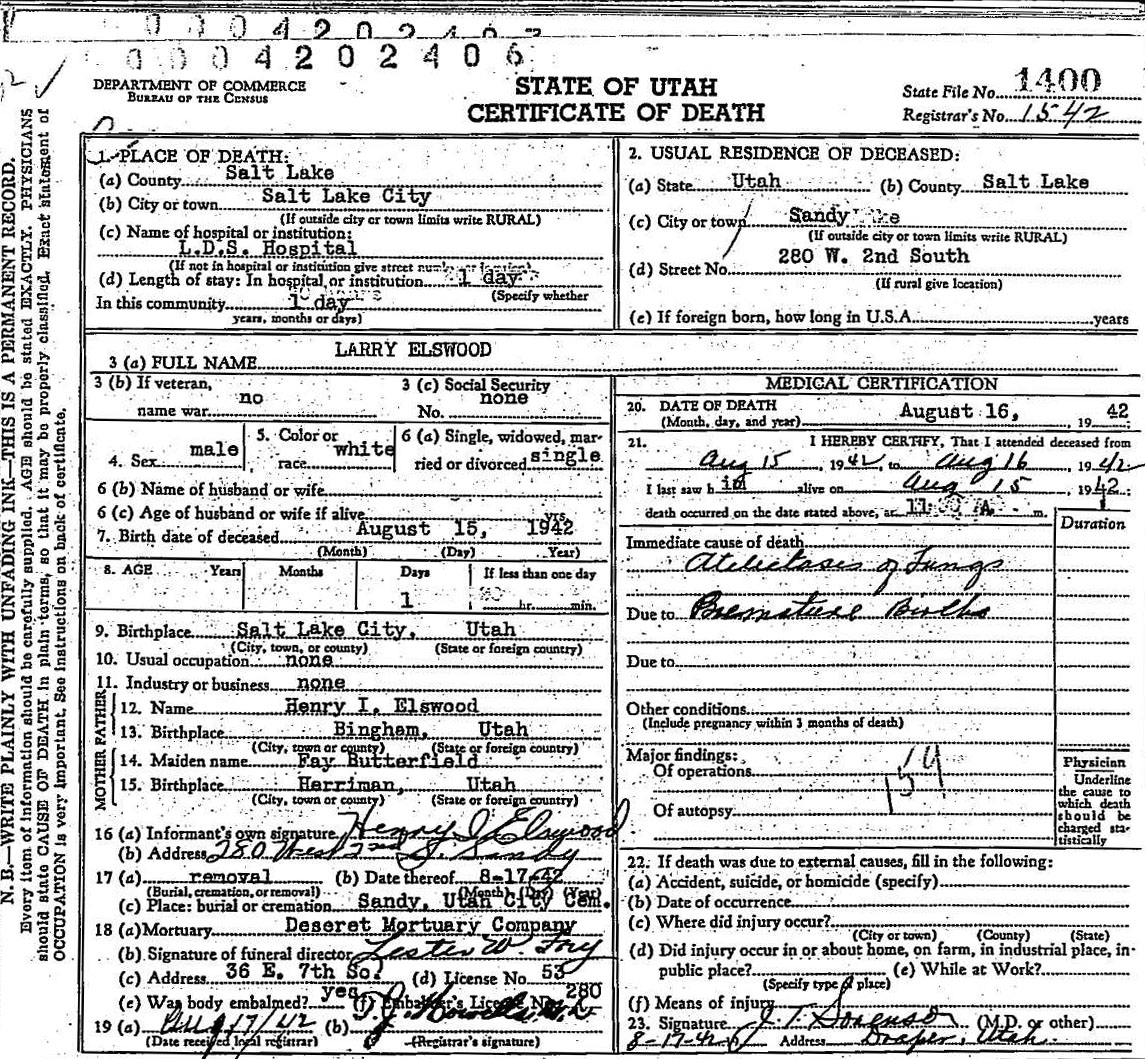 0 0 0 4 2 0 2 4 0
0 0 0 4 2 0 2 4 0 6
DEPARTMENT OF COMMERCE
BUREAU OF THE CENSUS
STATE OF UTAH
CERTIFICATE OF DEATH
State File No. 1400
Registrar's No. 1542
N. B.—WRITE PLAINLY WITH UNFADING INK—THIS IS A PERMANENT RECORD.
Every item of information should be carefully supplied. AGE should be stated EXACTLY. PHYSICIANS
should state CAUSE OF DEATH in plain terms, so that it may be properly classified. Exact statement of
OCCUPATION is very important. See instructions on back of certificate.
1. PLACE OF DEATH:
(a) County Salt Lake
(b) City or town Salt Lake City
(If outside city or town limits write RURAL)
(c) Name of hospital or institution:
L.D.S. Hospital
(If not in hospital or institution give street number or location)
(d) Length of stay: In hospital or institution 1 day
(Specify whether
In this community 1 day
years, months or days)
2. USUAL RESIDENCE OF DECEASED:
(a) State Utah (b) County Salt Lake
(c) City or town Sandy
(If outside city or town limits write RURAL)
(d) Street No. 280 W. 2nd South
(If rural give location)
(e) If foreign born, how long in U.S.A. years
3 (a) FULL NAME LARRY ELSWOOD
3 (b) If veteran, name war no
3 (c) Social Security No. none
4. Sex male
5. Color or race white
6 (a) Single, widowed, married or divorced single
6 (b) Name of husband or wife
6 (c) Age of husband or wife if alive yrs.
7. Birth date of deceased August 15, 1942
(Month) (Day) (Year)
8. AGE Years Months Days If less than one day
1 hr. min.
9. Birthplace Salt Lake City, Utah
(City, town, or county) (State or foreign country)
10. Usual occupation none
11. Industry or business none
FATHER
12. Name Henry I. Elswood
13. Birthplace Bingham, Utah
(City, town or county) (State or foreign country)
MOTHER
14. Maiden name Fay Butterfield
15. Birthplace Herriman, Utah
(City, town or county) (State or foreign country)
16 (a) Informant's own signature Henry I Elswood
(b) Address 280 West 2nd S. Sandy
17 (a) removal (b) Date thereof 8-17-42
(Burial, cremation, or removal) (Month) (Day) (Year)
(c) Place: burial or cremation Sandy, Utah City Cem.
18 (a) Mortuary Deseret Mortuary Company
(b) Signature of funeral director Lester W.
(c) Address 36 E. 7th So. (d) License No. 53
(e) Was body embalmed? yes (f) Embalmer's License No. 280
19 (a) Aug 17/42 (b)
(Date received local registrar) (Registrar's signature)
MEDICAL CERTIFICATION
20. DATE OF DEATH August 16, 19 42
(Month, day, and year)
21. I HEREBY CERTIFY, That I attended deceased from
Aug 15, 1942, to Aug 16 1942
I last saw h im alive on Aug 15 1942;
death occurred on the date stated above, at 11 A. m.
Duration
Immediate cause of death
Atelectasis of Lungs
Due to Premature Birth
Due to
Other conditions
(Include pregnancy within 3 months of death)
Major findings:
Of operations
159
Of autopsy
Physician
Underline
the cause to
which death
should be
charged sta-
tistically
22. If death was due to external causes, fill in the following:
(a) Accident, suicide, or homicide (specify)
(b) Date of occurrence
(c) Where did injury occur?
(City or town) (County) (State)
(d) Did injury occur in or about home, on farm, in industrial place, in
public place? (e) While at Work?
(Specify type of place)
(f) Means of injury
23. Signature J. T. Sorenson (M.D. or other)
8-17-42 Address Draper, Utah